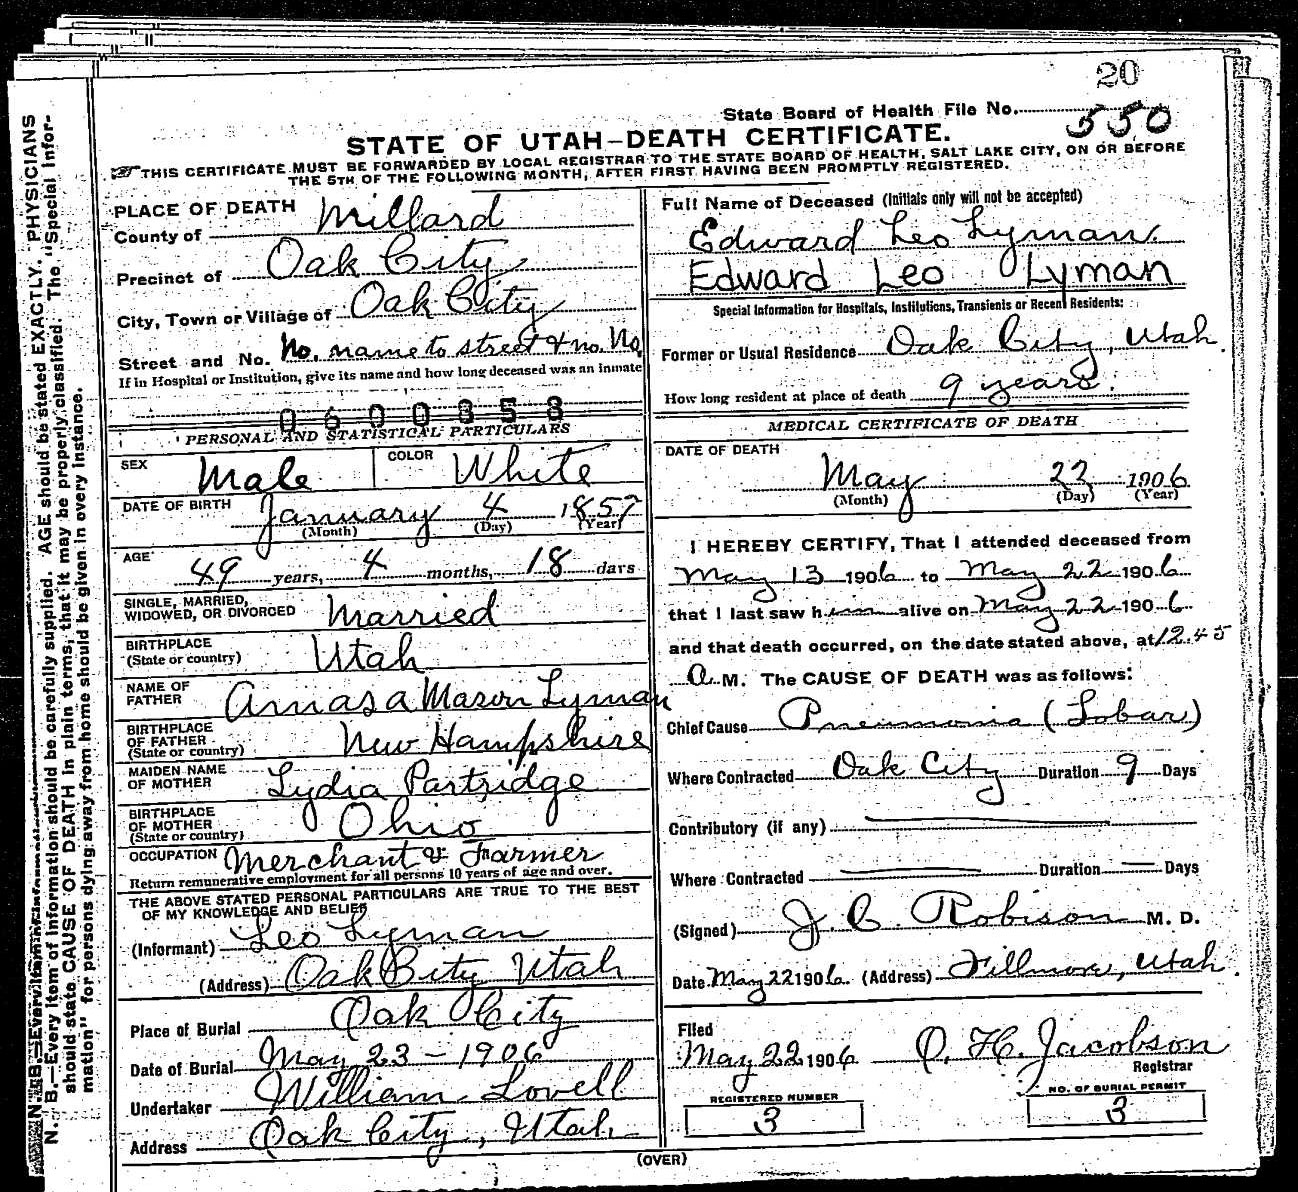 20
State Board of Health File No. 550
STATE OF UTAH—DEATH CERTIFICATE.
THIS CERTIFICATE MUST BE FORWARDED BY LOCAL REGISTRAR TO THE STATE BOARD OF HEALTH, SALT LAKE CITY, ON OR BEFORE
THE 5TH OF THE FOLLOWING MONTH, AFTER FIRST HAVING BEEN PROMPTLY REGISTERED.
PLACE OF DEATH
County of Millard
Precinct of Oak City
City, Town or Village of Oak City
Street and No. No. name to street & no. No.
If in Hospital or Institution, give its name and how long deceased was an inmate
0600353
PERSONAL AND STATISTICAL PARTICULARS
SEX Male COLOR White
DATE OF BIRTH January 4 1857
(Month) (Day) (Year)
AGE 49 years, 4 months, 18 days
SINGLE, MARRIED,
WIDOWED, OR DIVORCED Married
BIRTHPLACE
(State or country) Utah
NAME OF
FATHER Amasa Mason Lyman
BIRTHPLACE
OF FATHER
(State or country) New Hampshire
MAIDEN NAME
OF MOTHER Lydia Partridge
BIRTHPLACE
OF MOTHER
(State or country) Ohio
OCCUPATION Merchant & Farmer
Return remunerative employment for all persons 10 years of age and over.
THE ABOVE STATED PERSONAL PARTICULARS ARE TRUE TO THE BEST
OF MY KNOWLEDGE AND BELIEF
(Informant) Leo Lyman
(Address) Oak City Utah
Place of Burial Oak City
Date of Burial May 23 - 1906
Undertaker William Lovell
Address Oak City, Utah.
Full Name of Deceased (Initials only will not be accepted)
Edward Leo Lyman.
Edward Leo Lyman
Special Information for Hospitals, Institutions, Transients or Recent Residents:
Former or Usual Residence Oak City, Utah.
How long resident at place of death 9 years.
MEDICAL CERTIFICATE OF DEATH
DATE OF DEATH
May 22 1906
(Month) (Day) (Year)
I HEREBY CERTIFY, That I attended deceased from
May 13 1906 to May 22 1906
that I last saw him alive on May 22 1906
and that death occurred, on the date stated above, at 12.45
a M. The CAUSE OF DEATH was as follows:
Chief Cause Pneumonia (Lobar)
Where Contracted Oak City Duration 9 Days
Contributory (if any)
Where Contracted Duration Days
(Signed) J. C. Robison M. D.
Date May 22 1906 (Address) Fillmore, Utah.
Filed
May 22 1906 O. H. Jacobson
Registrar
REGISTERED NUMBER NO. OF BURIAL PERMIT
3 3
(OVER)
N. B.—Every item of information should be carefully supplied. AGE should be stated EXACTLY. PHYSICIANS
should state CAUSE OF DEATH in plain terms, that it may be properly classified. The "Special Infor-
mation" for persons dying away from home should be given in every instance.